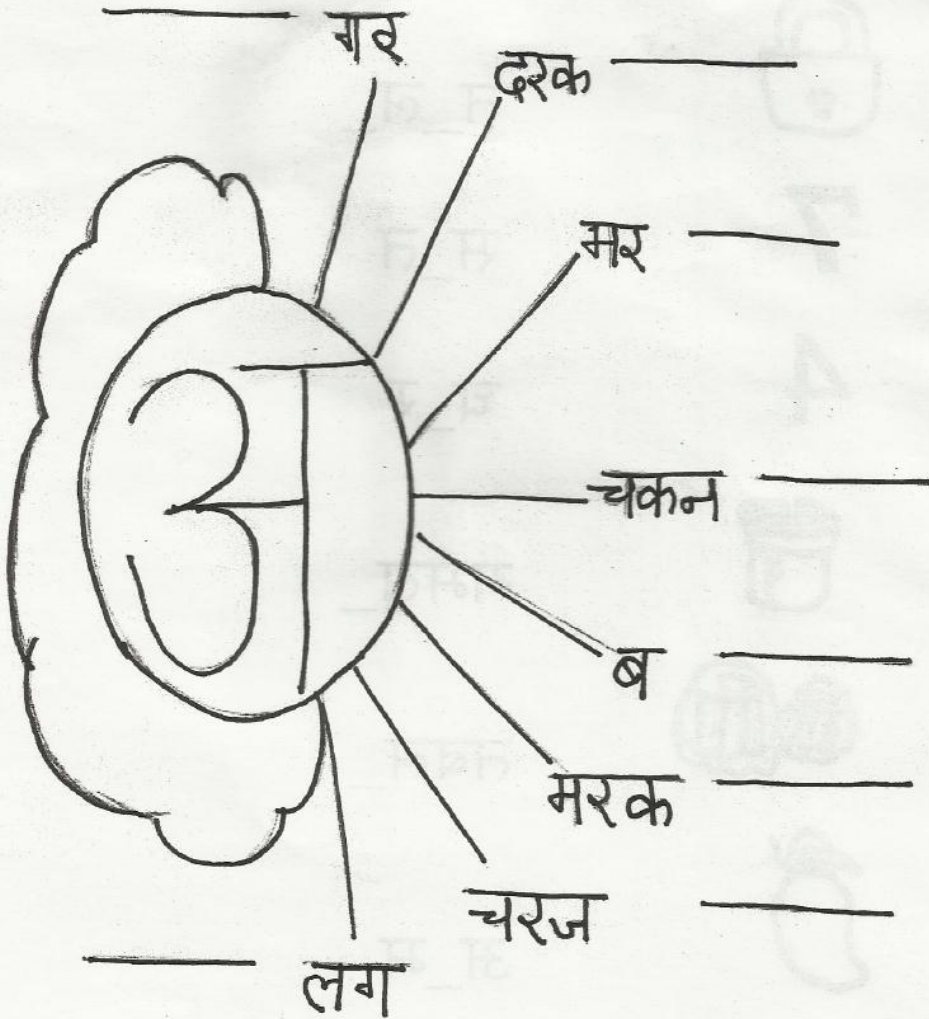 गर
दरक
मर
अ
चकन
ब
मरक
चरज
लग